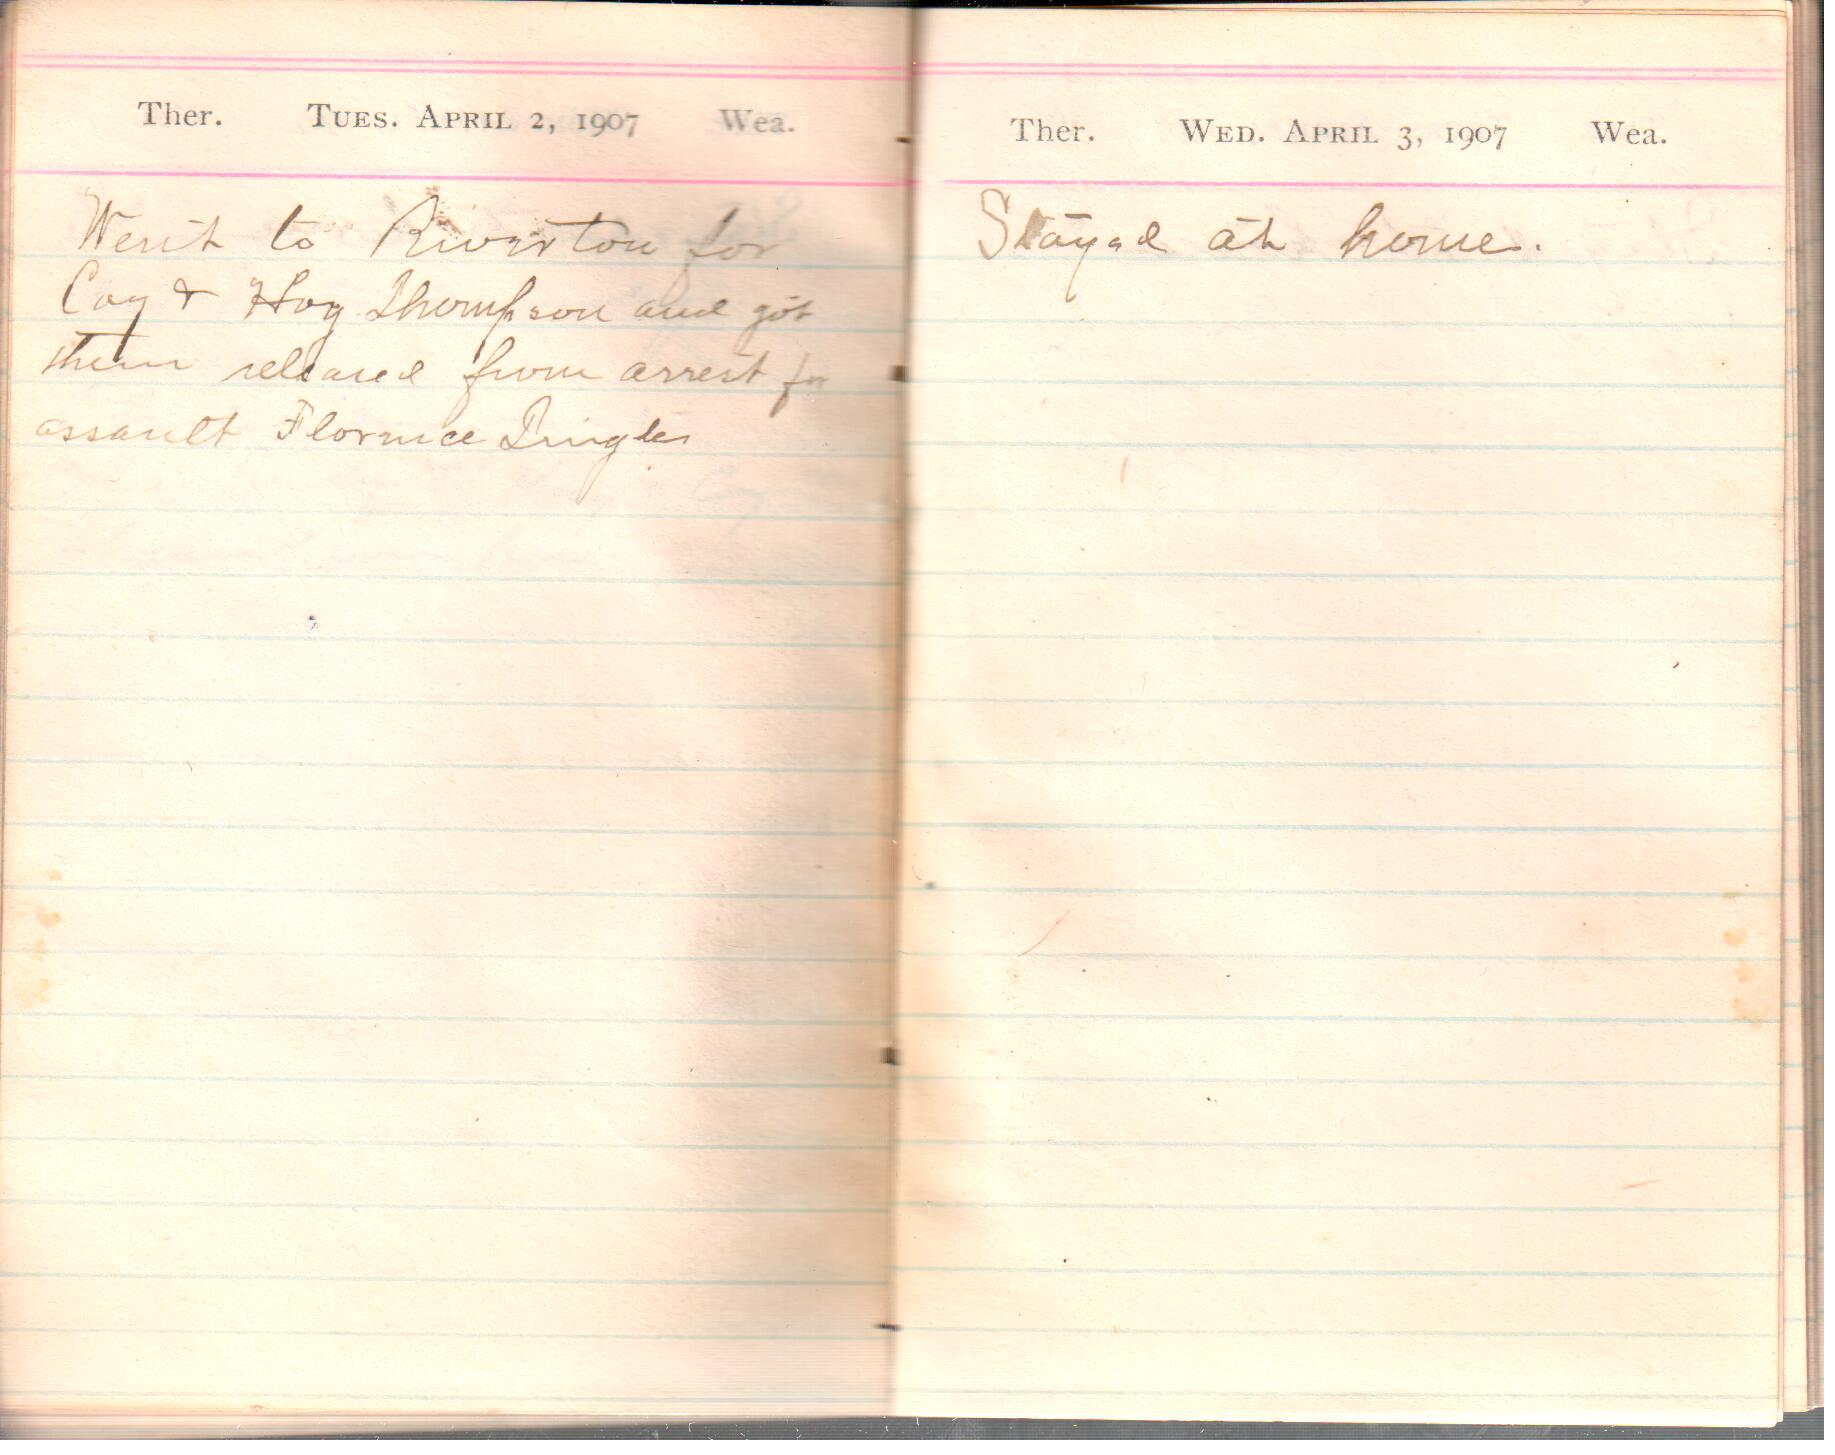 Ther. TUES. APRIL 2, 1907 Wea.
Went to Riverton for
Coy & Hoy Thompson and got
them released from arrest for
assault Florence
Ther. WED. APRIL 3, 1907 Wea.
Stayed at home.